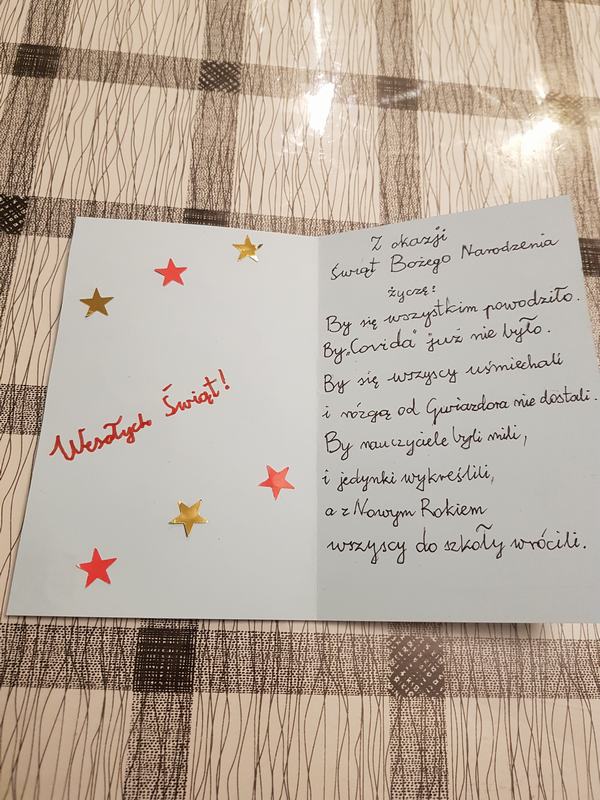 Wesołych Świąt!
Z okazji
Świąt Bożego Narodzenia
życzę:
By się wszystkim powodziło.
By „Covida" już nie było.
By się wszyscy uśmiechali
i rózgą od Gwiazdora nie dostali.
By nauczyciele byli mili,
i jedynki wykreślili,
a z Nowym Rokiem
wszyscy do szkoły wrócili.